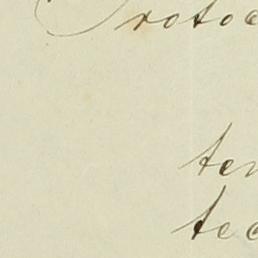 Protoc
ten
tec